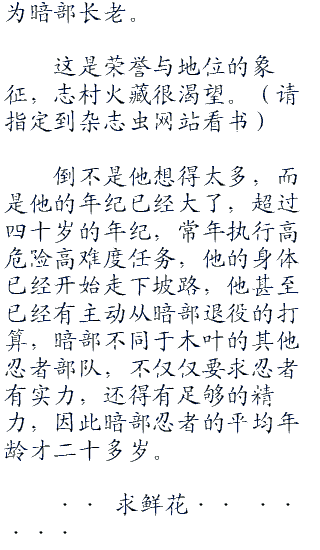 为暗部长老。
这是荣誉与地位的象
征，志村火藏很渴望。（请
指定到杂志虫网站看书）
倒不是他想得太多，而
是他的年纪已经大了，超过
四十岁的年纪，常年执行高
危险高难度任务，他的身体
已经开始走下坡路，他甚至
已经有主动从暗部退役的打
算，暗部不同于木叶的其他
忍者部队，不仅仅要求忍者
有实力，还得有足够的精
力，因此暗部忍者的平均年
龄才二十多岁。
·· 求鲜花·· ··
···